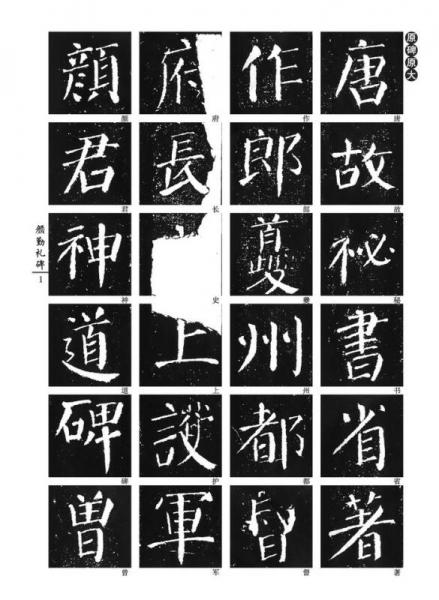 原碑原大
唐故祕書省著
唐故秘书省著
作郎夔州都督
作郎夔州都督
府長上護軍
府长史上护军
顏君神道碑曾
颜君神道碑曾
颜勤礼碑
1